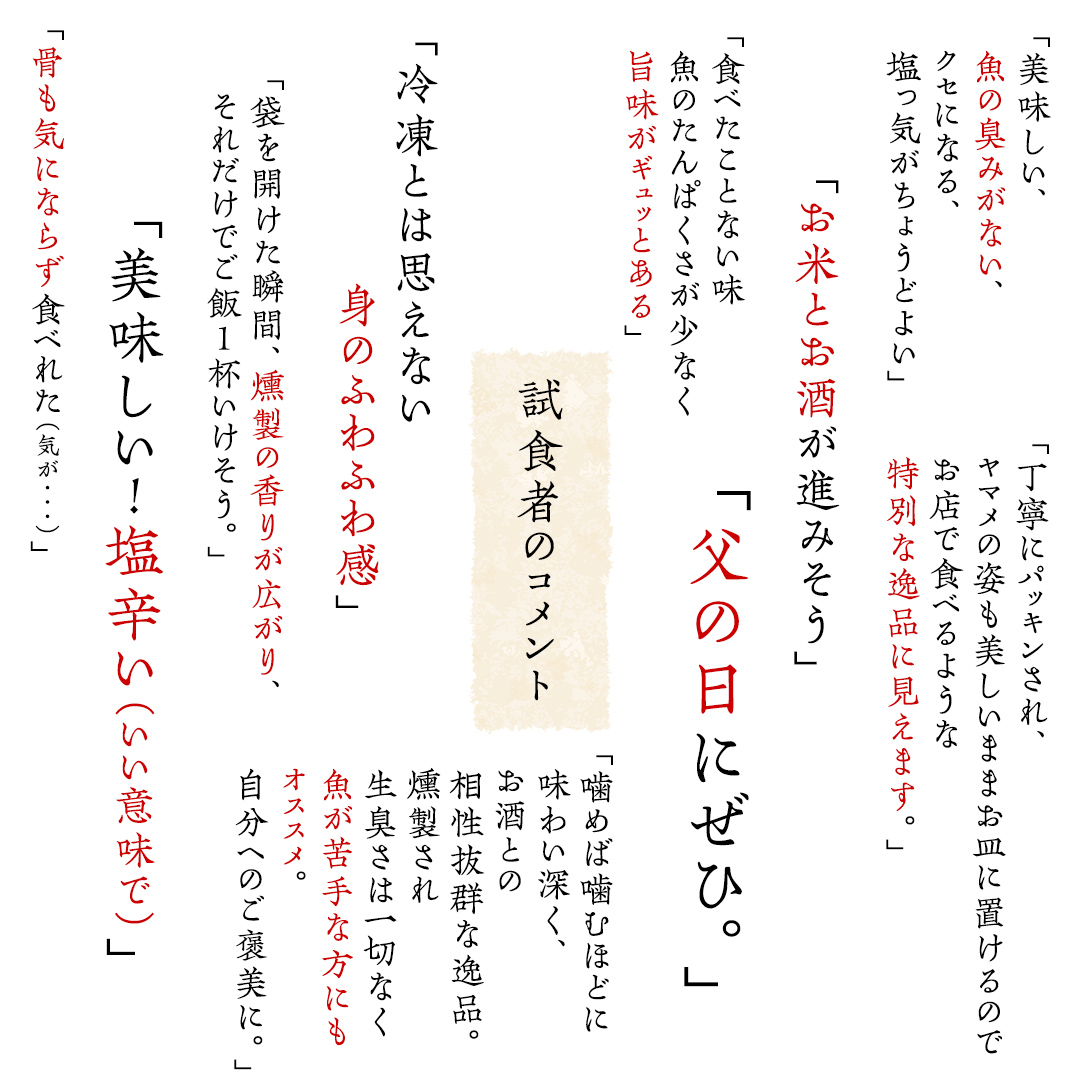 「美味しい、
魚の臭みがない、
クセになる、
塩っ気がちょうどよい」
「丁寧にパッキンされ、
ヤマメの姿も美しいままお皿に置けるので
お店で食べるような
特別な逸品に見えます。」
「お米とお酒が進みそう」
「食べたことない味
魚のたんぱくさが少なく
旨味がギュッとある」
「父の日にぜひ。」
試食者のコメント
「噛めば噛むほどに
味わい深く、
お酒との
相性抜群な逸品。
燻製され
生臭さは一切なく
魚が苦手な方にも
オススメ。
自分へのご褒美に。」
「冷凍とは思えない
身のふわふわ感」
「袋を開けた瞬間、燻製の香りが広がり、
それだけでご飯1杯いけそう。」
「美味しい！塩辛い（いい意味で）」
「骨も気にならず食べれた（気が・・・）」